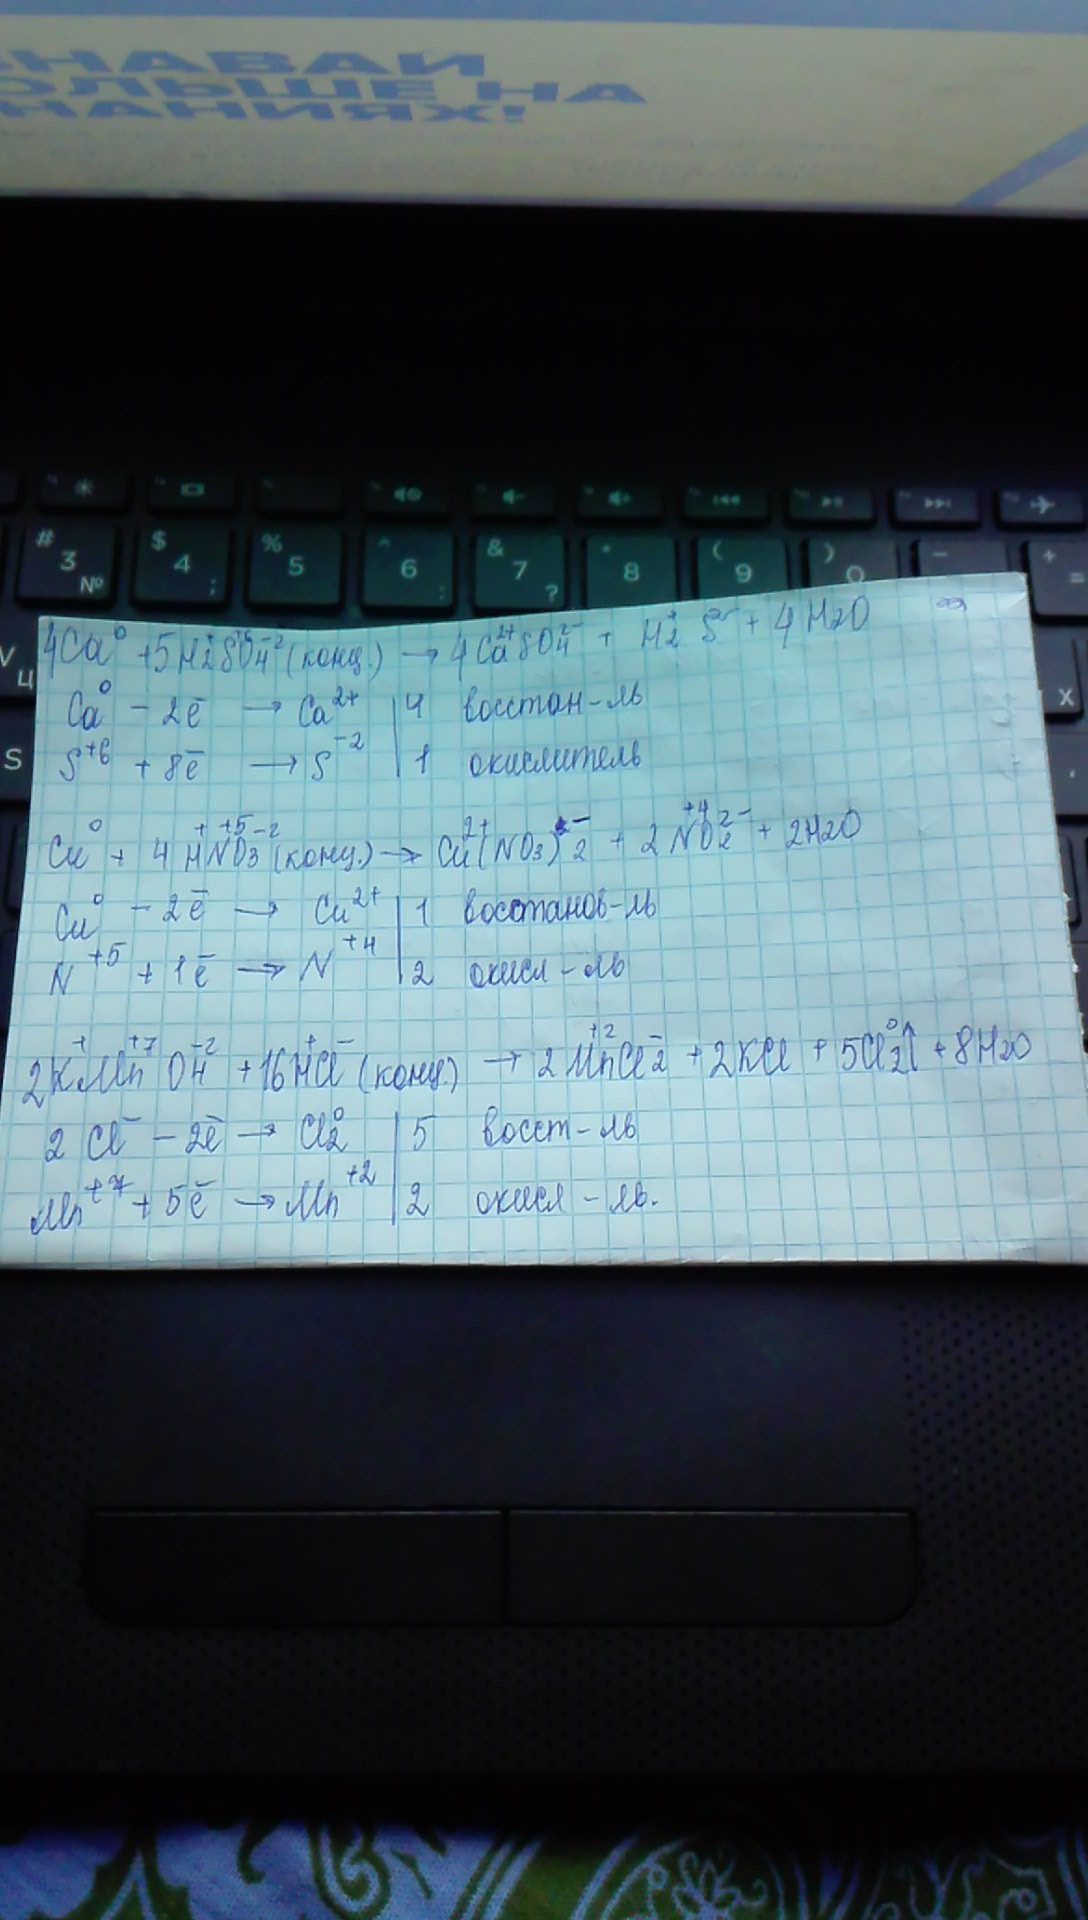 НАВАЙ
ОЛЬШЕ НА
НАНИЯХ!
# 3 №
$ 4 ;
% 5
^ 6 :
& 7 ?
* 8
( 9
) 0
-
+ =
V Ц
S
X
4Ca⁰ + 5H₂⁺S⁺⁶O₄⁻² (конц.) → 4Ca²⁺SO₄²⁻ + H₂⁺S²⁻ + 4H₂O
Ca⁰ - 2ē → Ca²⁺ | 4 восстан-ль
S⁺⁶ + 8ē → S⁻² | 1 окислитель
Cu⁰ + 4H⁺N⁺⁵O₃⁻² (конц.) → Cu²⁺(NO₃)₂⁻ + 2N⁺⁴O₂²⁻ + 2H₂O
Cu⁰ - 2ē → Cu²⁺ | 1 восстанов-ль
N⁺⁵ + 1ē → N⁺⁴ | 2 окисл-ль
2K⁺Mn⁺⁷O₄⁻² + 16H⁺Cl⁻ (конц.) → 2Mn⁺²Cl₂⁻ + 2KCl + 5Cl₂⁰↑ + 8H₂O
2Cl⁻ - 2ē → Cl₂⁰ | 5 восст-ль
Mn⁺⁷ + 5ē → Mn⁺² | 2 окисл-ль.